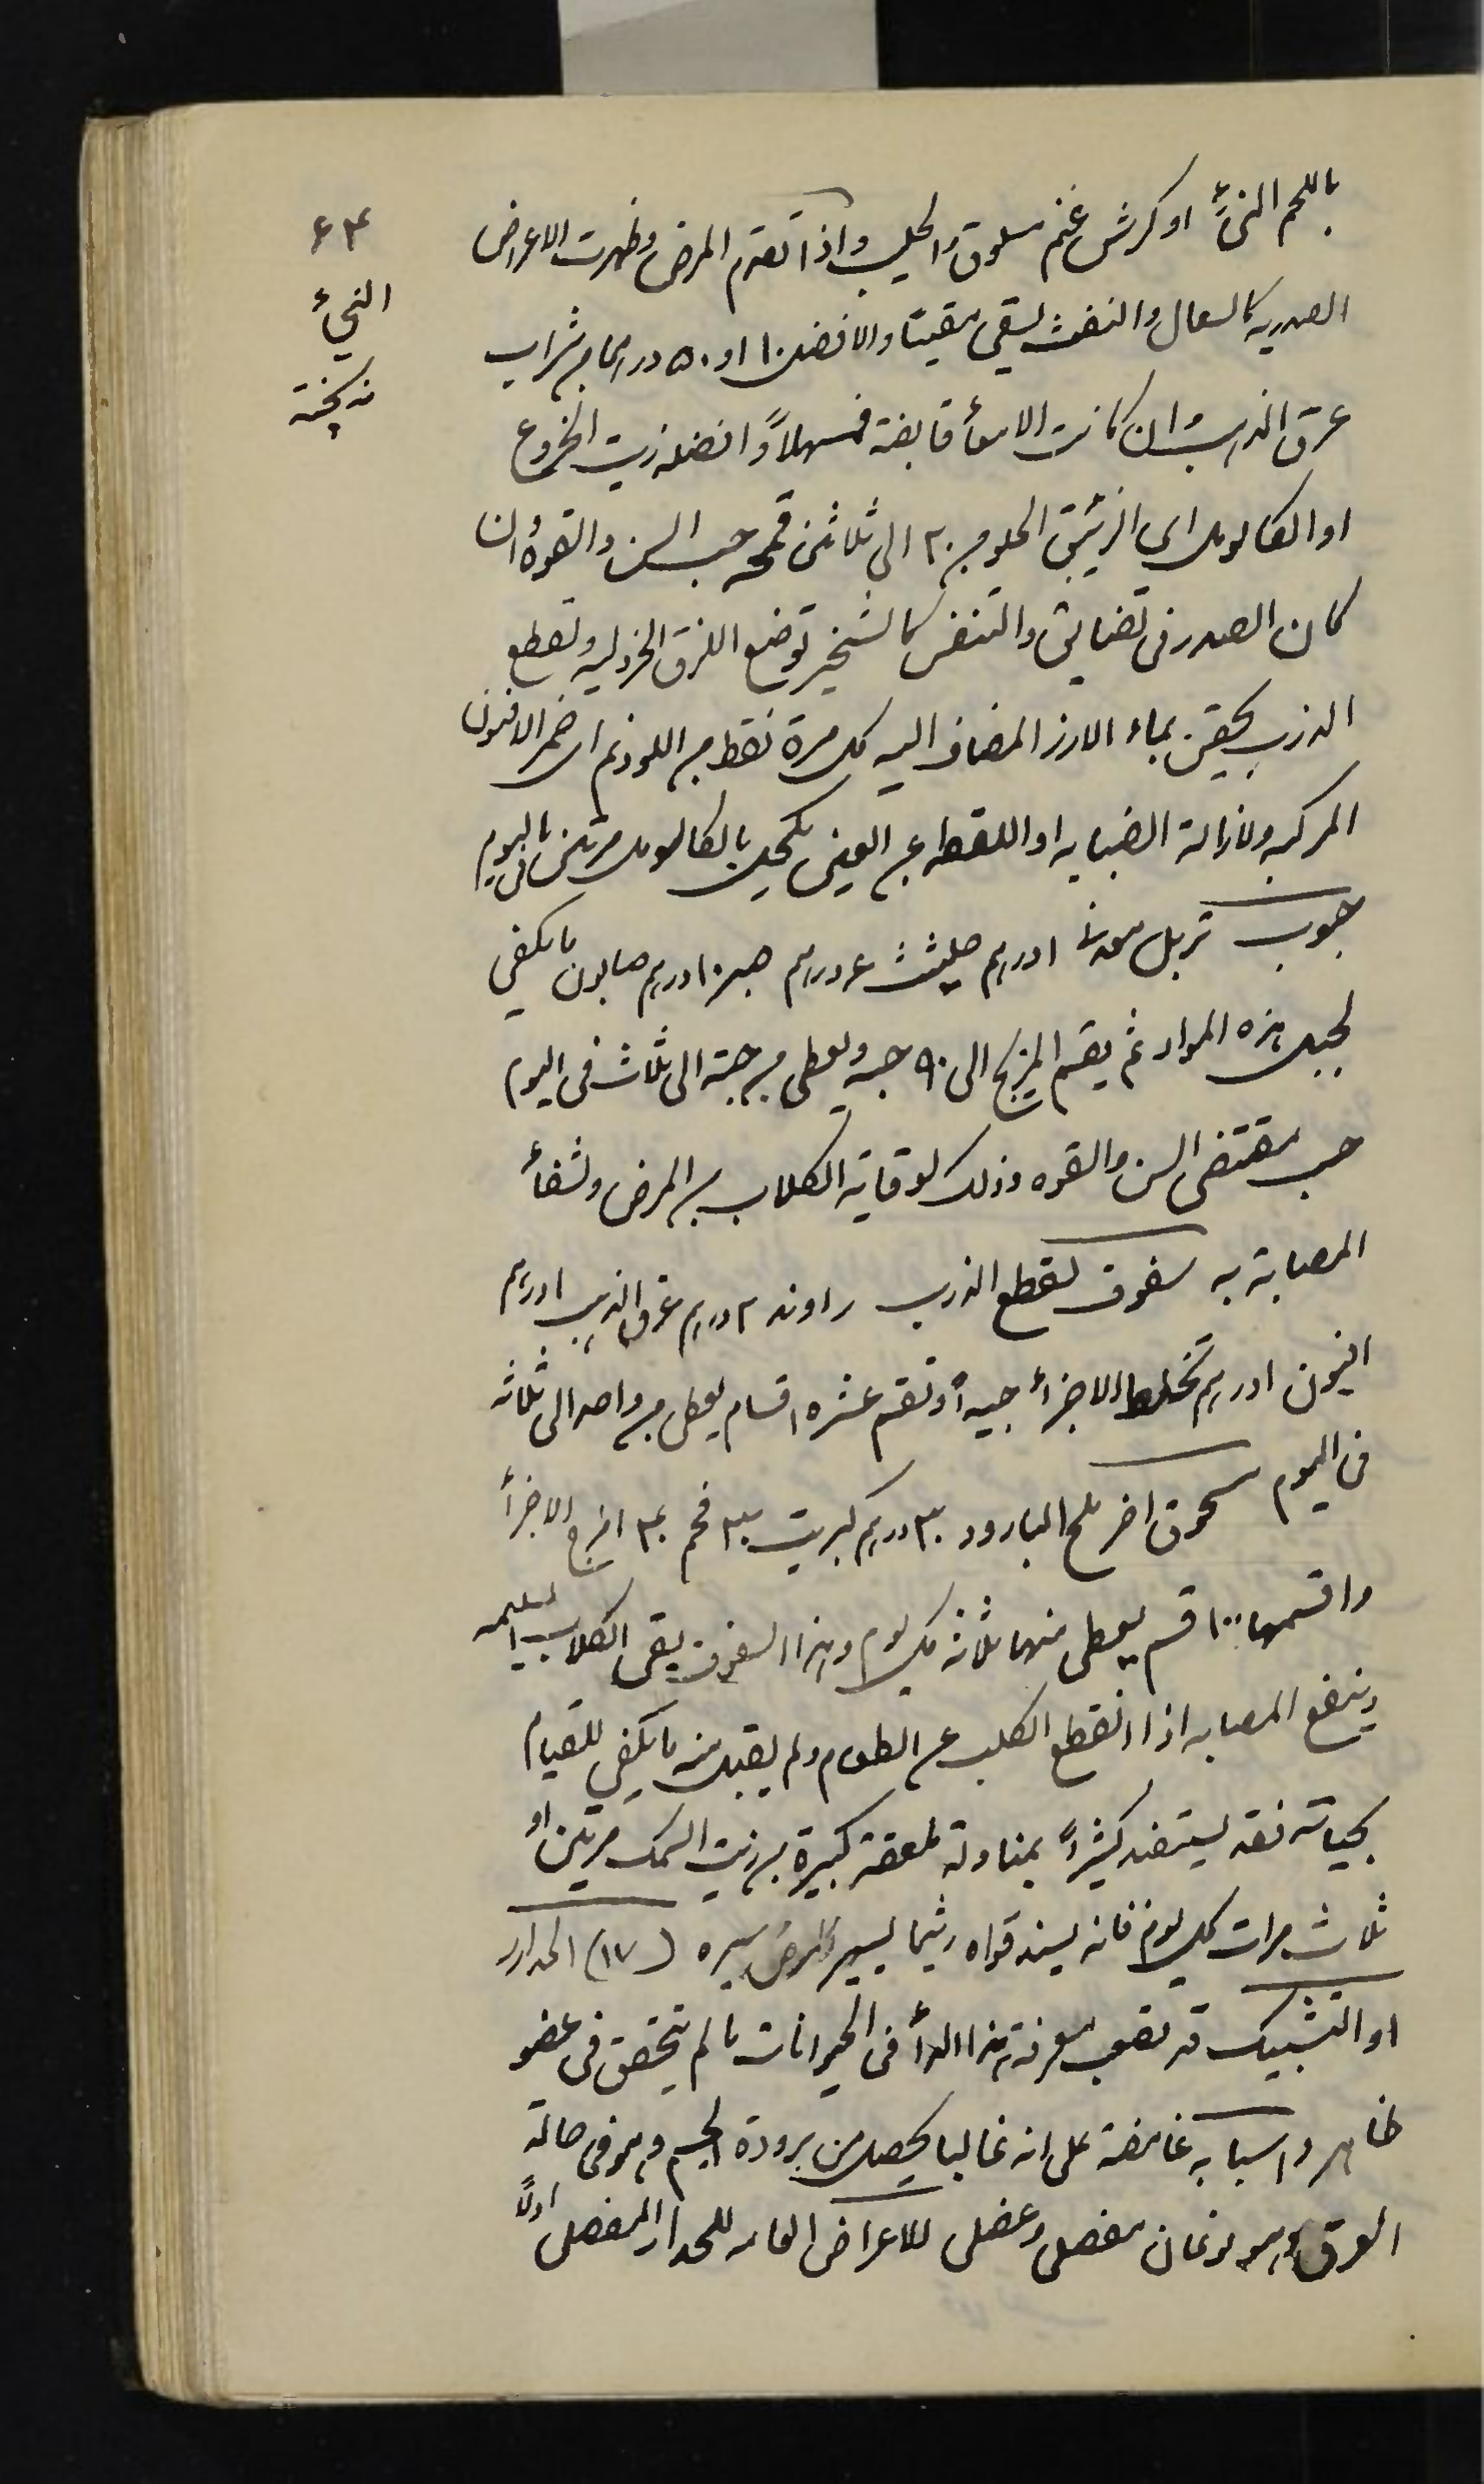 ٦٣
النيء
نه پخته
باللحم النيء او كرش غنم مسلوق والحليب واذا تقدم المرض وظهرت الاعراض
الصدريه كالسعال والنفث يسقى مقيئا والافضل ١٠ او ٥٠ درهما من شراب
عرق الذهب وان كانت الامعأ قابضة فمسهلاً وافضله زيت الخروع
او الكالومل اي الزئبق الحلو من ٢٠ الى ثلاثين قمحه حسب السن والقوة وان
كان الصدر في تضايق والتنفس كالشخير توضع اللزق الخردليه ولقطع
الذرب يحقن بماء الارز المضاف اليه كل مرة نقط من اللودنم اي خمر الافيون
المركب ولازالة الضبابه او اللقطه عن العين يكحل بالكالومل مرتين باليوم
حبوب تربل معدني ١ درهم حلتيت ٤ درهم صبر ١٠ درهم صابون ما يكفي
لجبل هذه المواد ثم يقسم المزيج الى ٩٠ حبه ويعطى من حبة الى ثلاث في اليوم
حسب مقتضى السن والقوه وذلك لوقاية الكلاب من المرض ولشفأ
المصابة به سفوف لقطع الذرب راوند ٢ درهم عرق الذهب ١ درهم
افيون ١ درهم تخلط الاجزأ جيدأ وتقسم عشره اقسام يعطى من واحد الى ثلاثه
في اليوم سحوق اخر ملح البارود ٣٠ درهم كبريت ٣٠ فحم ٣٠ امزج الاجزأ
واقسمها ١٠٠ قسم يعطى منها ثلاثة كل يوم وهذا السفوف يقي الكلاب السليمه
وينفع المصابه اذا انقطع الكلب عن الطعام ولم يقبل منه ما يكفي للقيام
بحياته فقد يستفد كثيرأً بمناولة ملعقة كبيرة من زيت السمك مرتين او
ثلاث مرات كل يوم فانه يسند قواه ريثما يسير المرض سيره (١٧) الحدار
او التشبيك قد يصعب معرفة هذا الدأ في الحيوانات ما لم يتحقق في عضو
ظاهر واسبابه غامضة على انه غالبا يحصل من برودة الجسم وهو في حالة
العرق وهو نوعان مفصلي وعضلي للاعراض العامه للحدار المفصلي اولاً